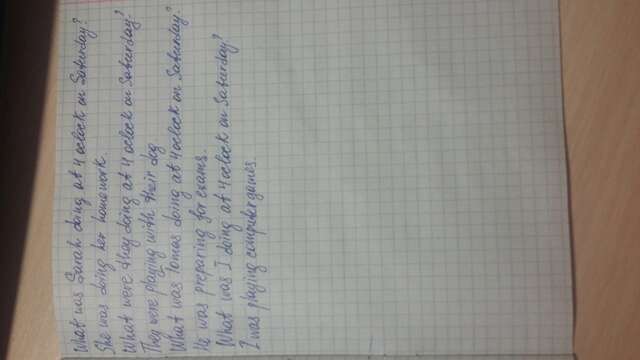 What was Sarah doing at 4 oclock on Saturday?
She was doing her homework.
What were they doing at 4 oclock on Saturday?
They were playing with their dog
What was Tomas doing at 4 oclock on Saturday?
He was preparing for exams.
What was I doing at 4 oclock on Saturday?
I was playing computer games